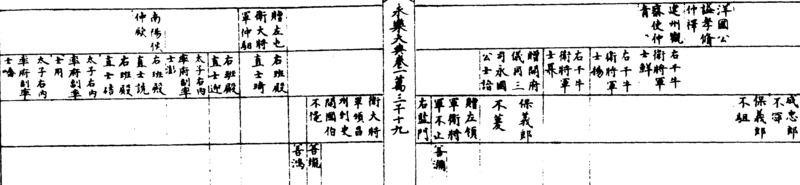 洋國公
諡孝脩
仲
建州觀
察使仲
右千牛
衛將軍
士鮮
右千牛
衛將軍
士錫
右千牛
衛將軍
士
贈開府
儀同三
司永國
公士
成忠郎
不
保義郎
不
保義郎
不菱
贈左領
軍衛將
軍不止
右監門
善瀰
永樂大典卷一萬三千十九
贈左屯
衛大將
軍仲
南陽侯
仲
右班殿
直士琦
右班殿
直士迎
太子右內
率府副率
士澎
右班殿
直士
右班殿
直士
太子右內
率府副率
士用
太子右內
率府副率
士
衛大將
軍
州刺史
開國伯
不
善瓏
善鴻